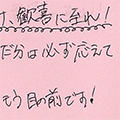 、歓喜に至れ！
だ分は必ず応えて
もう目の前です！